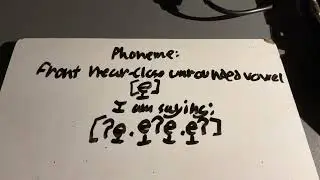 Phoneme:
Front near-close unrounded vowel
[e̝]
I am saying:
[ʔe̝.e̝ʔe̝.e̝ʔ]